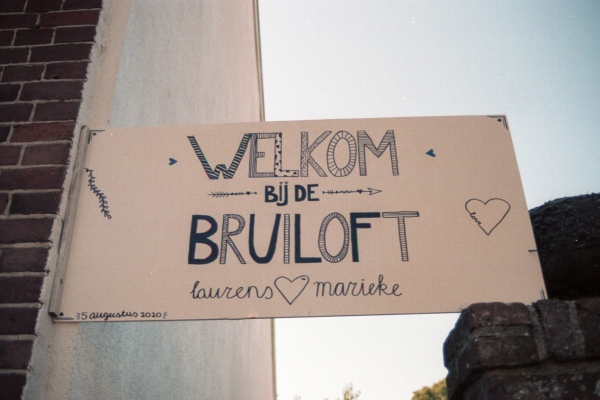 WELKOM
BIJ DE
BRUILOFT
laurens marieke
love
5 augustus 2020